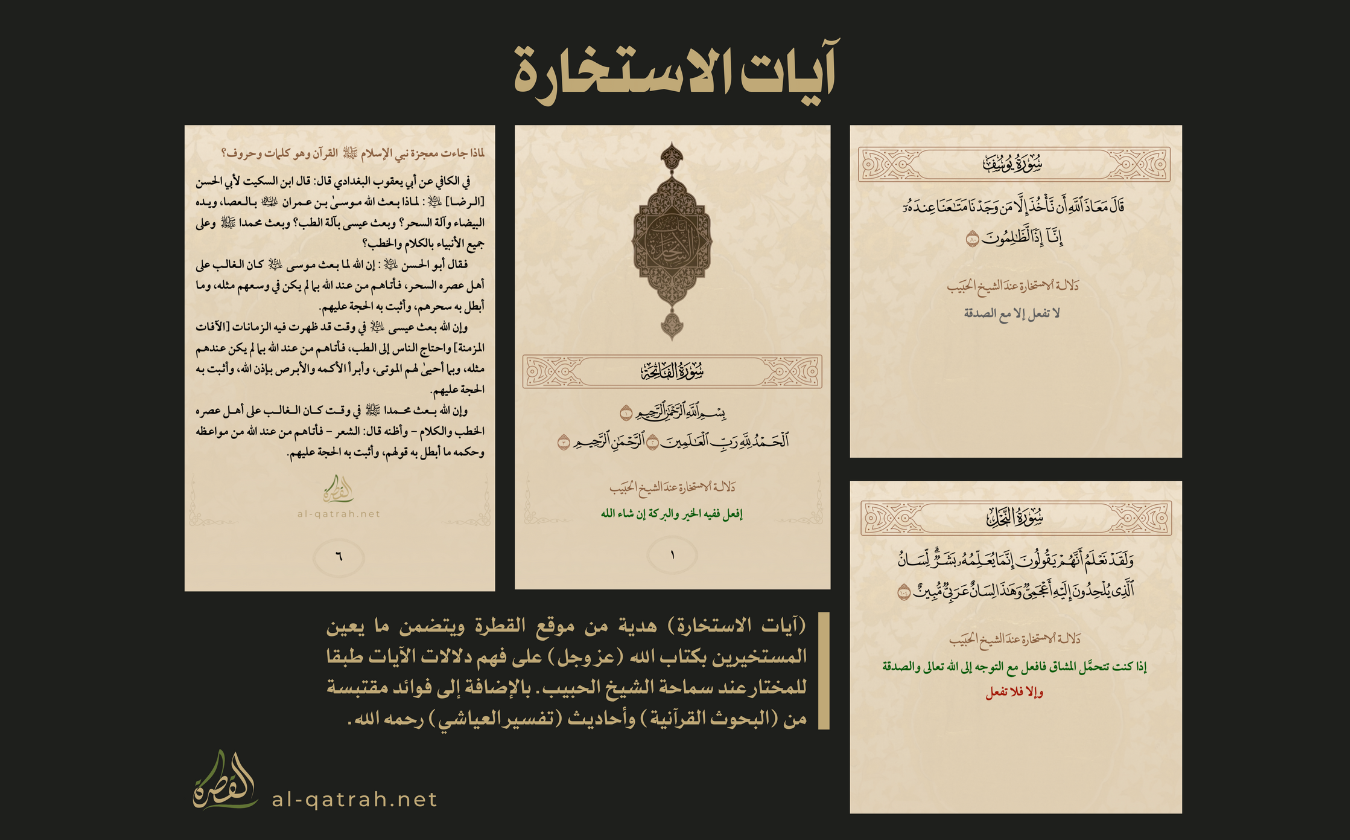 آيات الاستخارة
سُورَةُ يُوسُفَ
قَالَ مَعَاذَ ٱللَّهِ أَن نَّأۡخُذَ إِلَّا مَن وَجَدۡنَا مَتَٰعَنَا عِندَهُۥٓ
إِنَّآ إِذٗا لَّظَٰلِمُونَ
دلالة الاستخارة عند الشيخ الحبيب
لا تفعل إلا مع الصدقة
سُورَةُ النَّحۡلِ
وَلَقَدۡ نَعۡلَمُ أَنَّهُمۡ يَقُولُونَ إِنَّمَا يُعَلِّمُهُۥ بَشَرٞۗ لِّسَانُ
ٱلَّذِي يُلۡحِدُونَ إِلَيۡهِ أَعۡجَمِيّٞ وَهَٰذَا لِسَانٌ عَرَبِيّٞ مُّبِينٌ
دلالة الاستخارة عند الشيخ الحبيب
إذا كنت تتحمَّل المشاق فافعل مع التوجه إلى الله تعالى والصدقة
وإلا فلا تفعل
سُورَةُ الفَاتِحَةِ
بِسۡمِ ٱللَّهِ ٱلرَّحۡمَٰنِ ٱلرَّحِيمِ
ٱلۡحَمۡدُ لِلَّهِ رَبِّ ٱلۡعَٰلَمِينَ ٱلرَّحۡمَٰنِ ٱلرَّحِيمِ
دلالة الاستخارة عند الشيخ الحبيب
إفعل ففيه الخير والبركة إن شاء الله
١
لماذا جاءت معجزة نبي الإسلام ﷺ القرآن وهو كلمات وحروف؟
في الكافي عن أبي يعقوب البغدادي قال: قال ابن السكيت لأبي الحسن
[الرضا] : لماذا بعث الله موسىٰ بن عمران بالعصا، ويده
البيضاء وآلة السحر؟ وبعث عيسى بآلة الطب؟ وبعث محمدا ﷺ وعلى
جميع الأنبياء بالكلام والخطب؟
فقال أبو الحسن : إن الله لما بعث موسى كان الغالب على
أهل عصره السحر، فأتاهم من عند الله بما لم يكن في وسعهم مثله، وما
أبطل به سحرهم، وأثبت به الحجة عليهم.
وإن الله بعث عيسى في وقت قد ظهرت فيه الزمانات [الآفات
المزمنة] واحتاج الناس إلى الطب، فأتاهم من عند الله بما لم يكن عندهم
مثله، وبما أحيىٰ لهم الموتى، وأبرأ الأكمه والأبرص بإذن الله، وأثبت به
الحجة عليهم.
وإن الله بعث محمدا ﷺ في وقت كان الغالب على أهل عصره
الخطب والكلام – وأظنه قال: الشعر – فأتاهم من عند الله من مواعظه
وحكمه ما أبطل به قولهم، وأثبت به الحجة عليهم.
القطرة
al-qatrah.net
٦
(آيات الاستخارة) هدية من موقع القطرة ويتضمن ما يعين
المستخيرين بكتاب الله (عز وجل) على فهم دلالات الآيات طبقا
للمختار عند سماحة الشيخ الحبيب. بالإضافة إلى فوائد مقتبسة
من (البحوث القرآنية) وأحاديث (تفسير العياشي) رحمه الله.
القطرة
al-qatrah.net